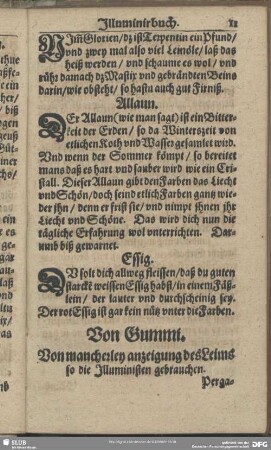 Illuminirbuch. 21
NImm Glorien/dz ist Terpentin ein Pfund/
vnd zwey mal also viel Leinöle/laß das
heiß werden/vnd schaume es wol/vnd
rührs darnach dz Mastix vnd gebrandten Beins
darin/wie obsteht/so hastu auch gut Firniß.
Allaun.
DEr Allaun(wie man sagt)ist ein Bitter-
keit der Erden/so da Winterszeit von
etlichen Koth vnd Wasser gesamlet wird.
Vnd wenn der Sommer kömpt/so bereitet
mans daß es hart vnd sauber wird wie ein Cri-
stall. Dieser Allaun gibt den Farben das Liecht
vnd Schön/doch seind etlich Farben gantz wie-
der ihn/denn er frist sie/vnd nimpt ihnen ihr
Liecht vnd Schöne. Das wird dich nun die
tägliche Erfahrung wol vnterrichten. Dar-
vmb biß gewarnet.
Essig.
DV solt dich allweg fleissen/daß du guten
starckē weissen Essig habst/in einem Fäß-
lein/der lauter vnd durchscheinig sey.
Der rot Essig ist gar kein nütz vnter die Farben.
Von Gummi.
Von mancherley anzeigung des Leims
so die Illuministen gebrauchen.
Perga-